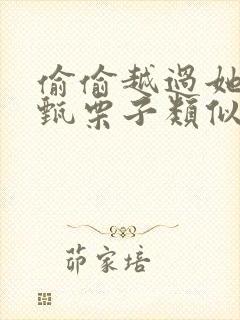 偷偷越過她
甄栗子類似
茆家培